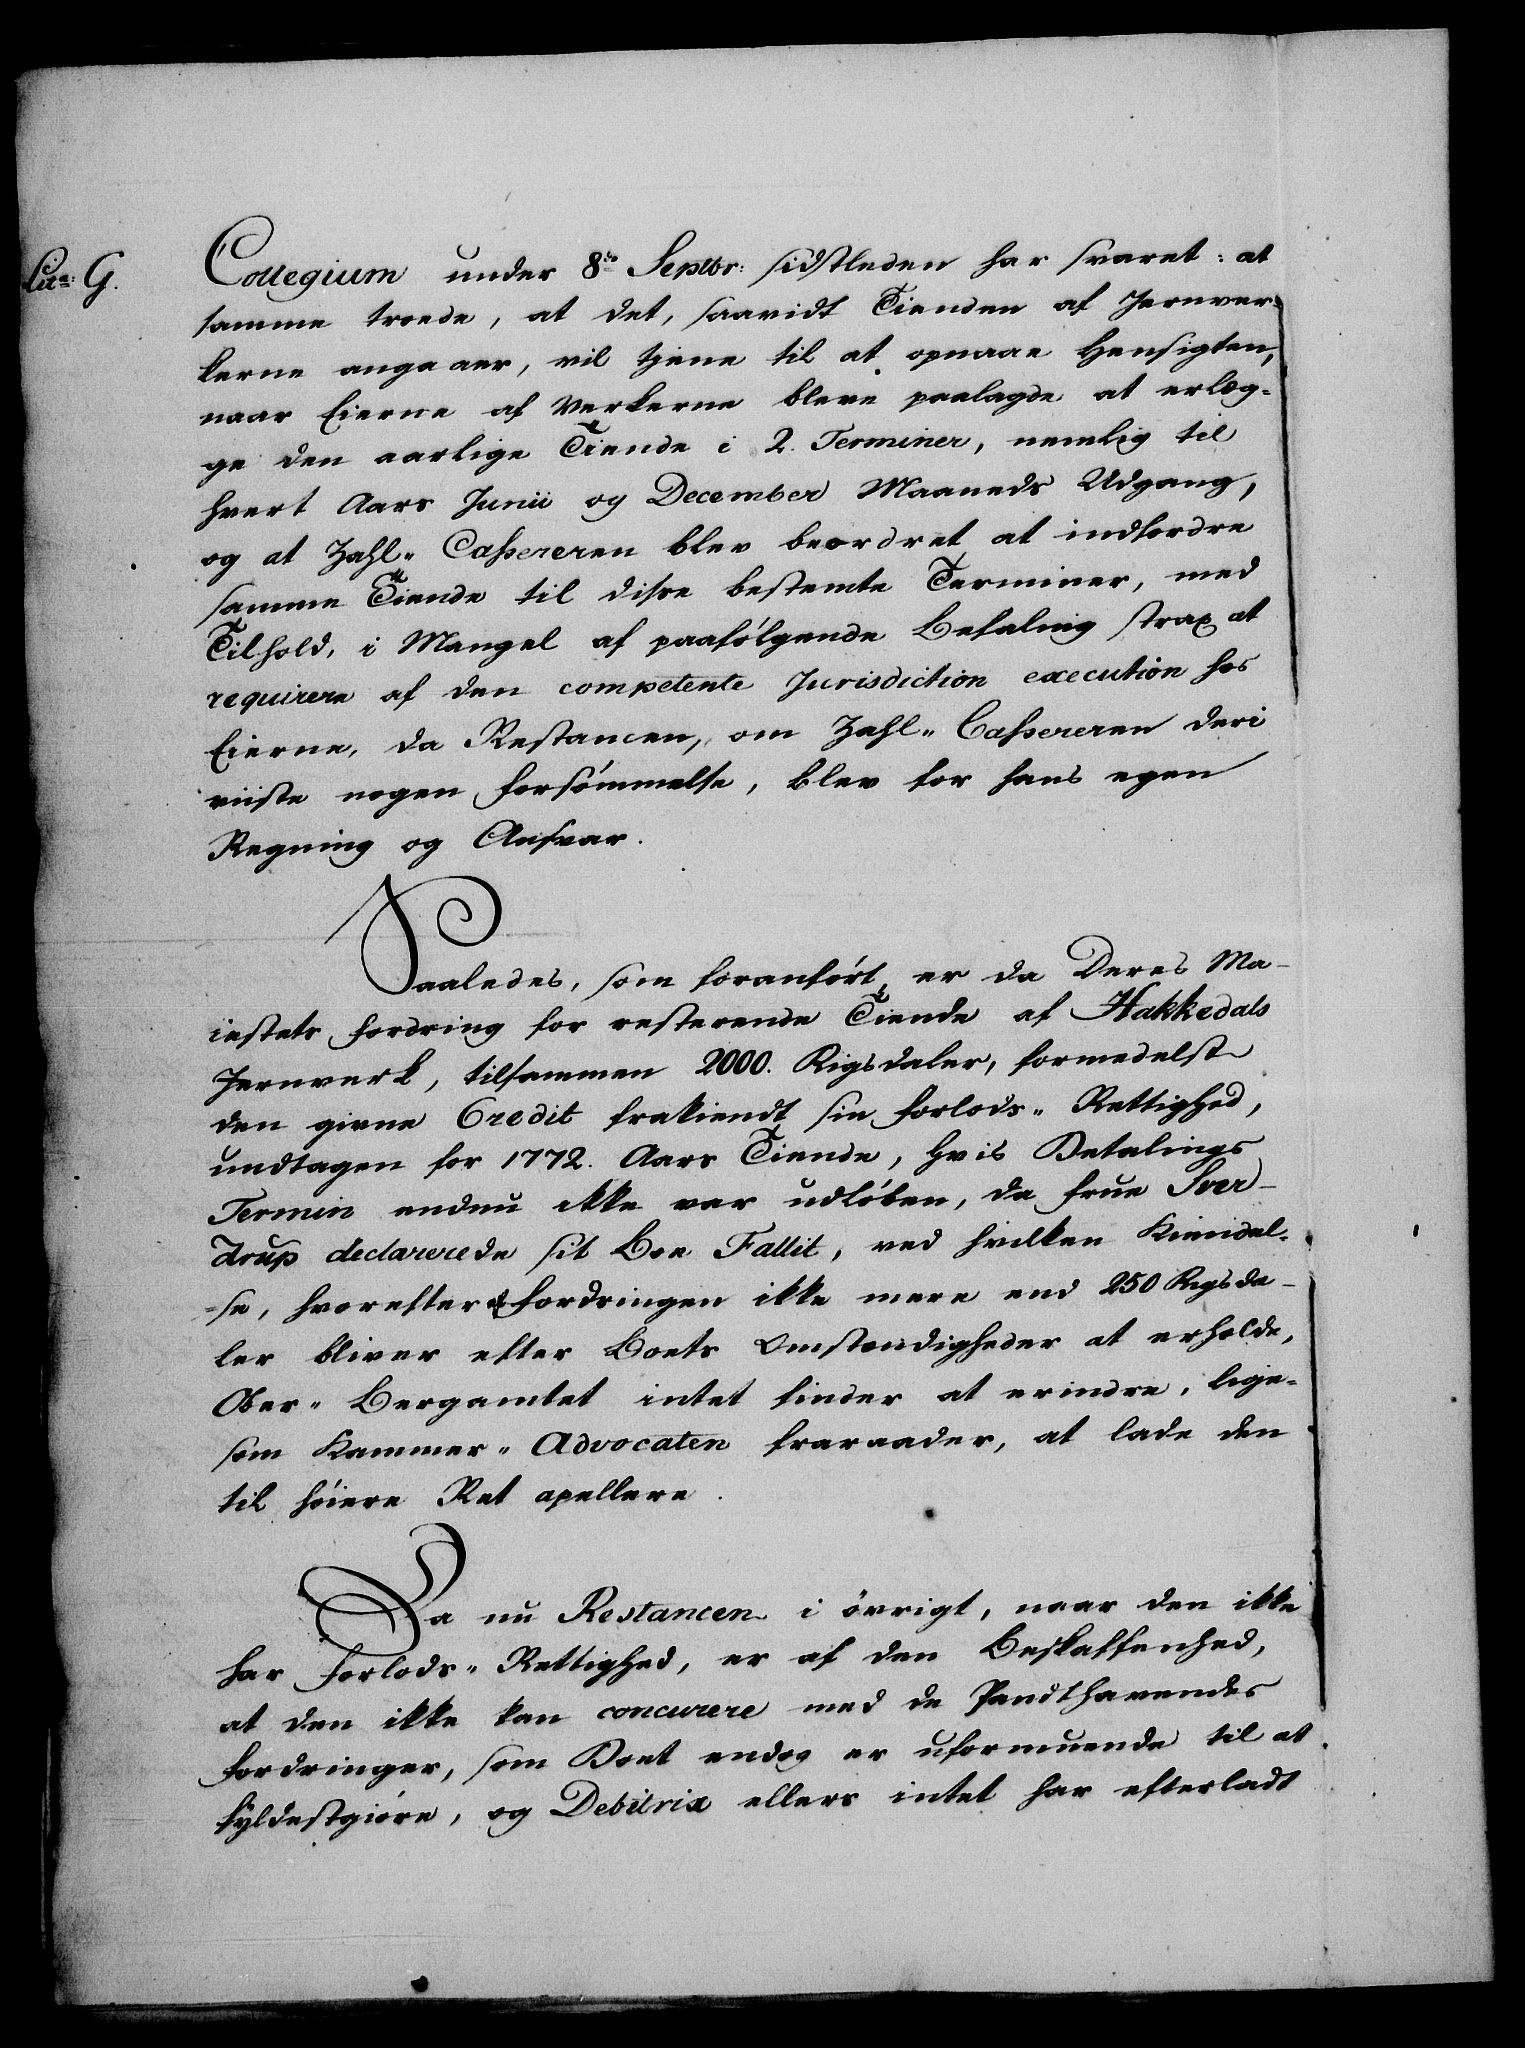 Lit: G.
Collegium under 8de Septbr: sidstleden har svaret: at
samme troede, at det, saavidt Tienden af Jernver-
kerne angaaer, vil tjene til at opnaae Hensigten,
naar Eierne af Verkerne bleve paalagde at erlæg-
ge den aarlige Tiende i 2. Terminer, nemlig til
hvert Aars Junii og December Maaneds Udgang,
og at Zahl- Cassereren blev beordret at indfordre
samme Tiende til disse bestemte Terminer, med
Tilhold, i Mangel af paafölgende Befaling strax at
requirere af den competente Jurisdiction execution hos
Eierne, da Restancen, om Zahl- Cassereren deri
viiste nogen forsömmelse, blev for hans egen
Regning og Ansvar.
Saaledes, som foranfört, er da Deres Ma-
iestets fordring for resterende Tiende af Hakkedals
Jernverk, tilsammen 2000. Rigsdaler, formedelst
den givne Credit frakiendt sin forlods- Rettighed,
undtagen for 1772. Aars Tiende, hvis Betalings
Termin endnu ikke var udlöben, da frue Sver-
drup declarerede sit Boe Fallit, ved hvilken Kiendel-
-se, hvorefter af fordringen ikke mere end 250 Rigsda-
ler bliver efter Boets Omstændigheder at erholde,
Ober- Bergamtet intet finder at erindre, lige-
som Kammer- Advocaten fraraader, at lade den
til höiere Ret apellere.
Da nu Restancen i övrigt, naar den ikke
har forlods- Rettighed, er af den Beskaffenhed,
at den ikke kan concurere med de Pandthavendes
fordringer, som Boet endog er uformuende til at
fyldestgiöre, og Debitrix ellers intet har efterladt